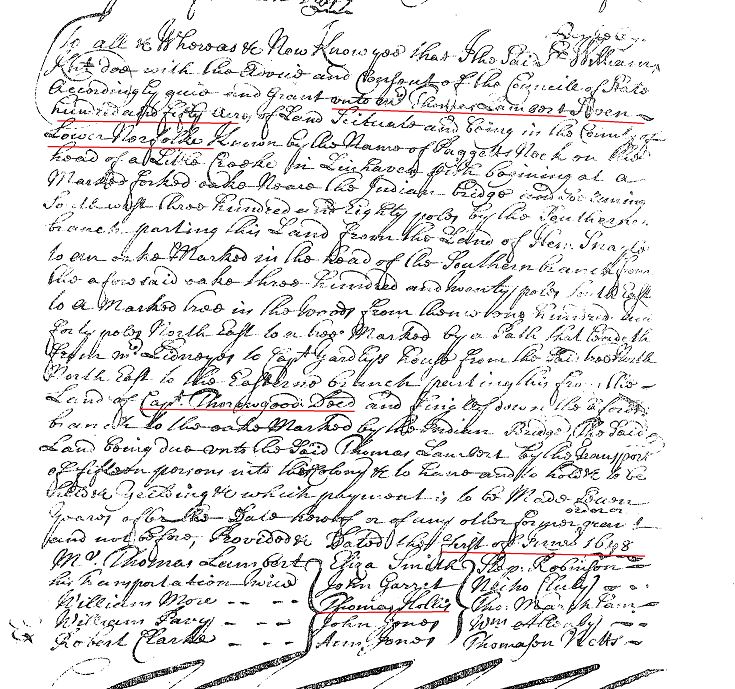 To all &c Whereas &c Now Know yee that I the Said Sr William
Knt doe with the Advice and Consent of the Councill of State
Accordingly give and Grant unto Mr Thomas Lambert Seven
hundred and fifty acres of Land Scituate and being in the County of
Lower Norfolke Known by the Name of Puggetts Neck on the
head of a Little Creeke in Linhaven begining at a
Marked forked oake Neare the Indian Bridge and runing
South west three hundred and Eighty poles by the Southerne
branch parting this Land from the Land of Hen: Snayle
to an oake Marked in the head of the Southern branch from
the aforesaid oake three hundred and twenty poles South East
to a Marked tree in the woods from thence one hundred and
forty poles North East to a tree Marked by a Path that leadeth
from Mr Lidneyes to Capt Yardlys house from the Said tree North
North East to the Easterne branch parting this from the
Land of Capt Thorowgood Decd and Singly downe the aforesd
branch to the oake Marked by the Indian Bridge, The Said
Land being due unto the Said Thomas Lambert by the transport
of fifteen persons into the Colony &c to have and to hold &c to be
held &c Yeilding &c which payment is to be Made Seven
Yeares after the Date hereof or of any other former grant
order or
and not before, Provided &c Dated this first of June 1648
Mr Thomas Lambert Eliza Smith Step. Robinson
his transportation twice John Garrit Nicho
William More Thomas Hollis Tho: Markham
William Davy John Jones Wm
Robert Clarke Ann Jones Thomason